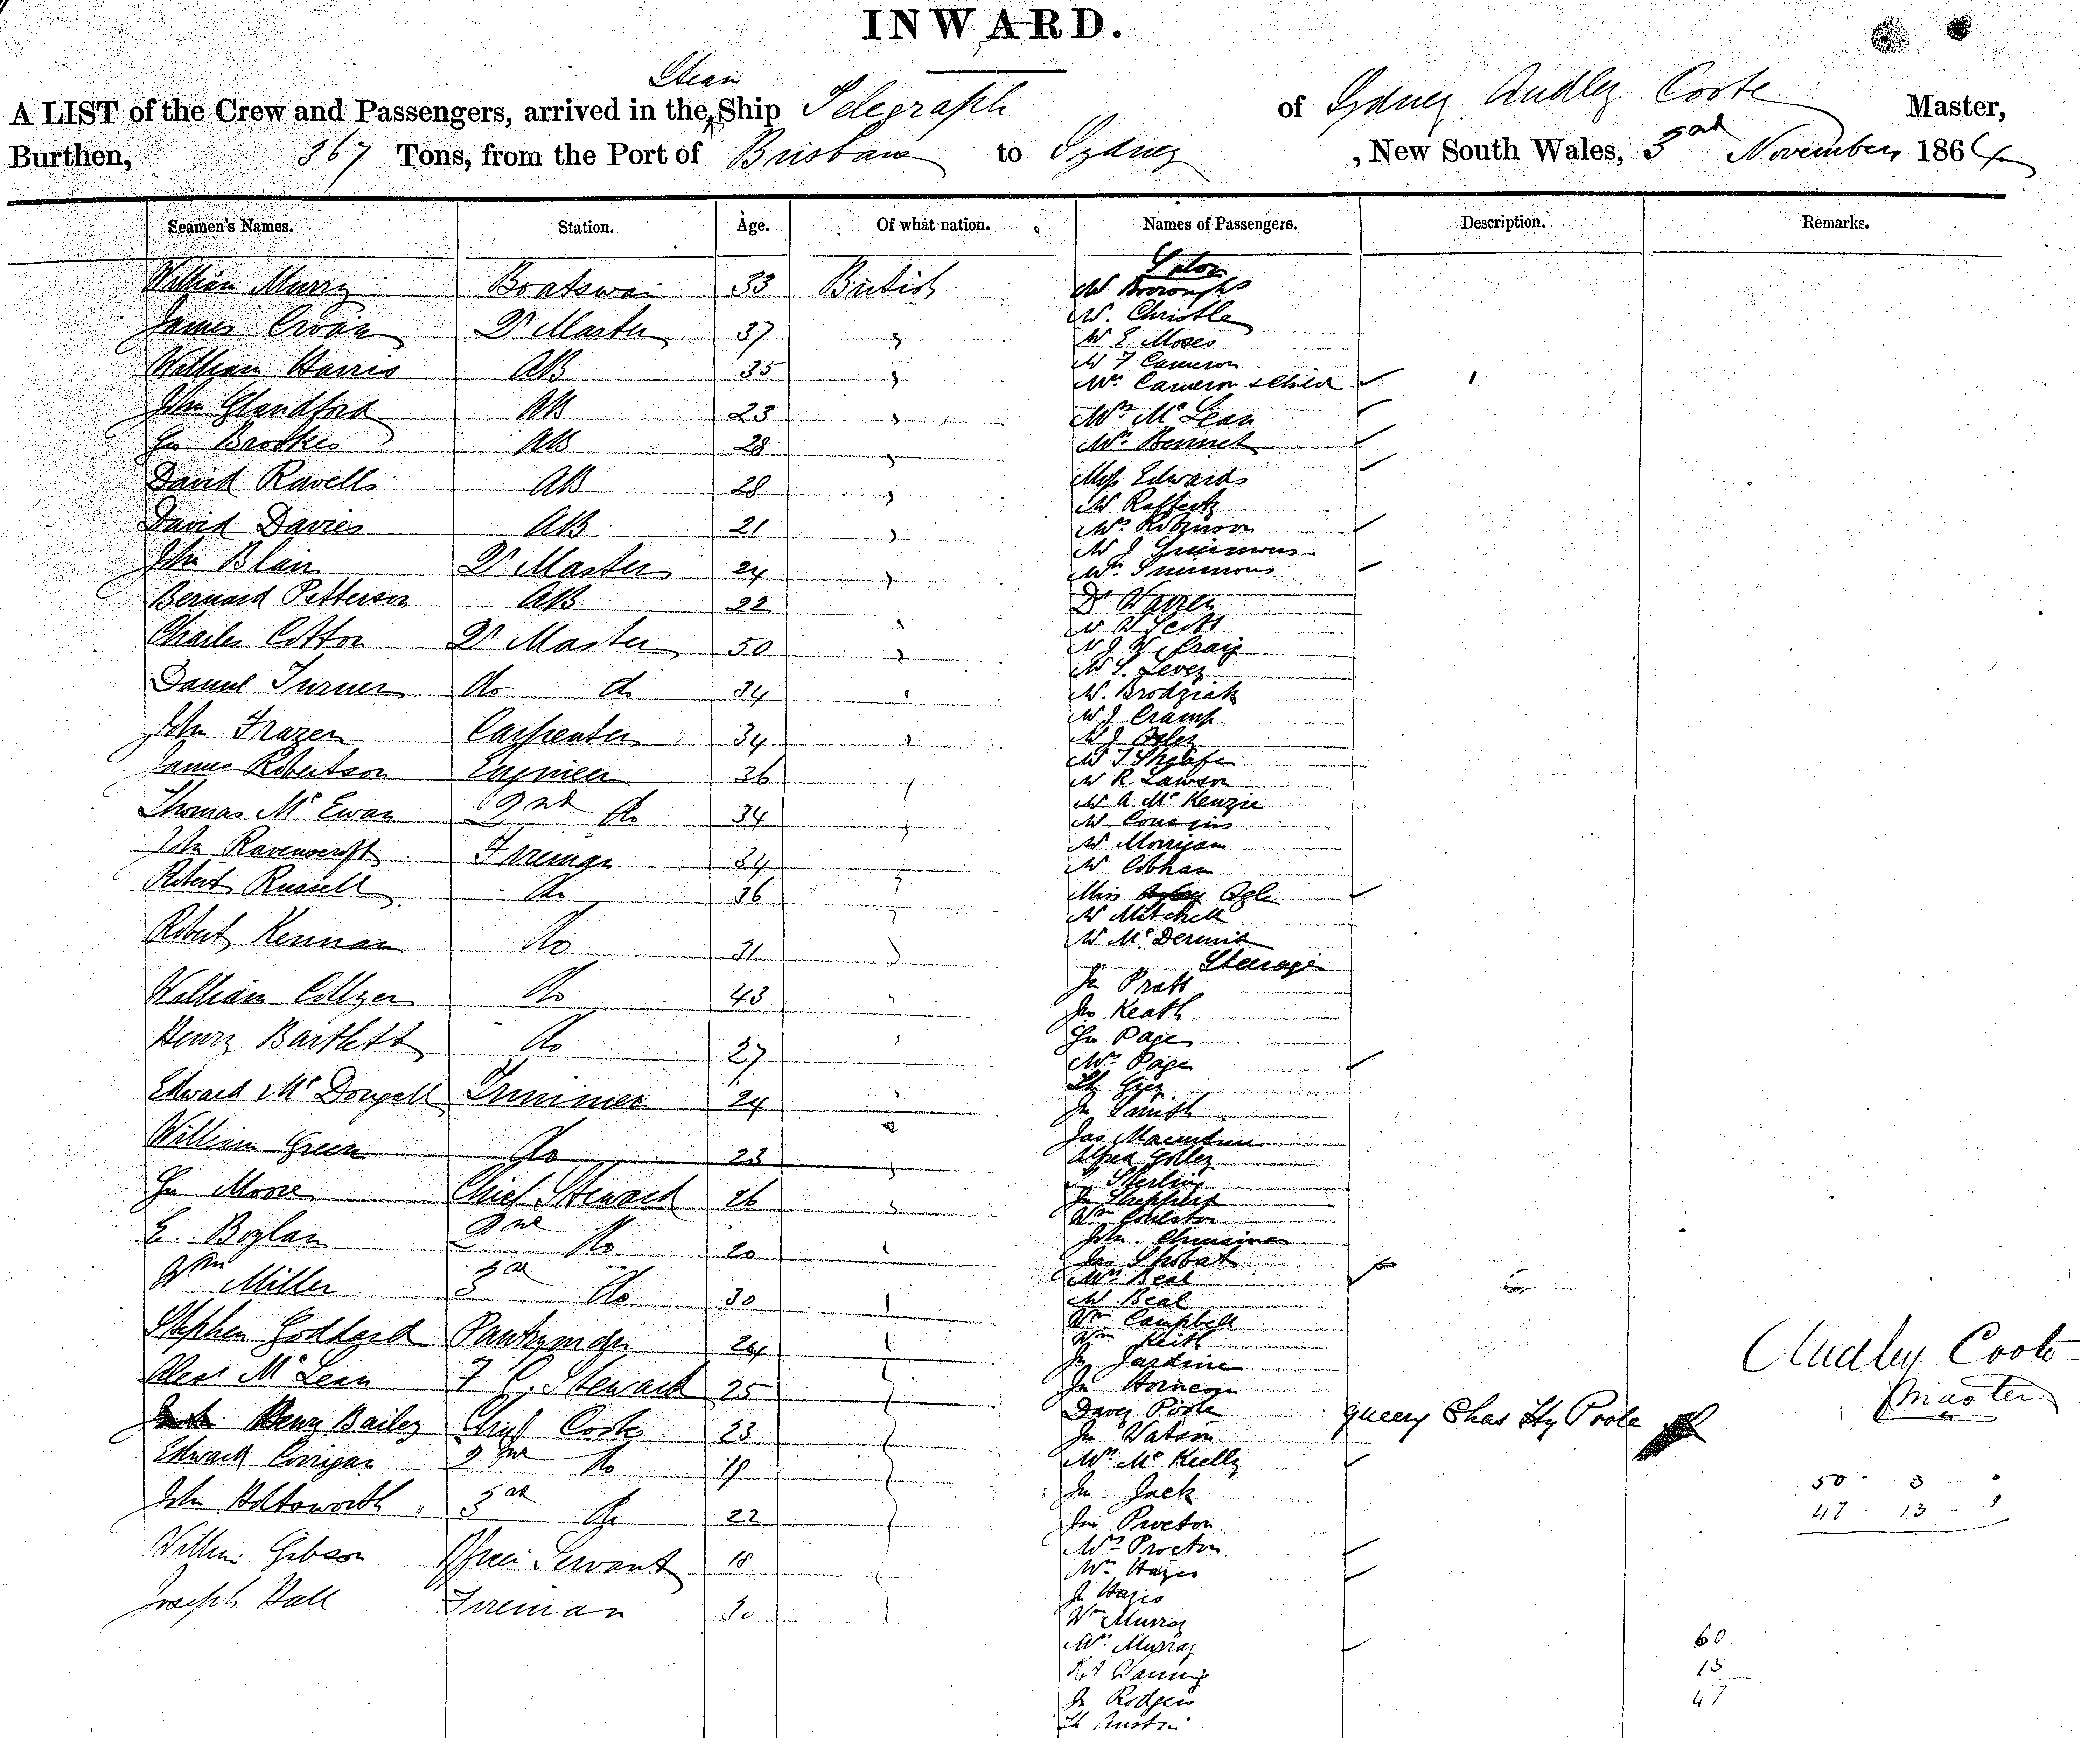 INWARD.
Steam
A LIST of the Crew and Passengers, arrived in the Ship Telegraph of Sydney Audley Coote Master,
Burthen, 367 Tons, from the Port of Brisbane to Sydney, New South Wales, 3rd November 1864
Seamen's Names. Station. Age. Of what nation. Names of Passengers. Description. Remarks.
William Murry Boatswain 33 British
James 37
William Harris AB 35 "
John Glandford AB 23 "
Jn Brookes AB 28 "
David Ravells AB 28 "
David Davies AB 21 "
John Blair Qr Master 24 "
Bernard Petterson AB 22 "
Charles Cotton Qr Master 50 "
Daniel Turner do do 34 "
John Frazer Carpenter 34 "
James Robertson Engineer 36 "
Thomas McEwan 2nd do 34 "
John Ravenscroft Fireman 34 "
Robert Russell do 36 "
Robert Kennan do 31 "
William Collyer do 43 "
Henry Bartlett do 27 "
Edward McDougall Trimmer 24 "
William Green do 23 "
Jn Moore Chief Steward 26 "
E. Boylan 2nd do 20 "
Wm Miller 3rd do 30 "
Stephen Goddard Pantryman 24 "
Alexr McLean F C Steward 25 "
Henry Bailey Chief Cook 23 "
Edward Corrigan 2nd do 19 "
John Holdsworth 3rd do 22 "
William Gibson Officers Servant 18 "
Joseph Hall Fireman 30 "
Saloon
Mr Borroughs
Mr Christle
Mr E Moses
Mr F Cameron
Mrs Cameron & Child
Mrs McLean
Mrs Bennet
Miss Edwards
Mr Raffertz
Mrs Robinson
Mr J Simmons
Mrs Simmons
Dr
Mr W Scott
Mr J W Craig
Mr L Levey
Mr Brodziak
Mr J Cramp
Mr J
Mr T
Mr R Lawson
Mr A McKenzie
Mr Cousins
Mr Morrigan
Mr Cobham
Miss Ogle
Mr Mitchell
Mr McDermid
Steerage
Jn Pratt
Jn Keath
Jn Page
Mrs Page
Jn
Jas
Alfred Golley
Sterling
Jn Sheppherd
Wm Coulston
John Chinaman
Jas
Mrs Beal
Mr Beal
Wm Campbell
Wm Keith
Jn Jardine
Jn
Davey Poole query Chas Hy Poole
Jn Watson
Mrs McKielly
Jn Jack
Jn Procton
Mrs Procton
Mrs Hayes
Jn Hayes
Wm Murray
Mrs Murray
Jn Rodgers
Audley Coote
Master
50 3
47 13
60
13
47